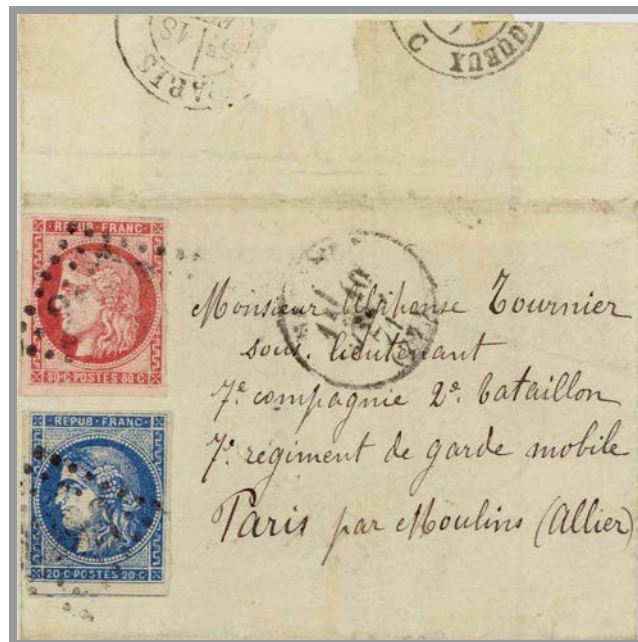 PARIS
18
C
REPUB·FRANC
80·C·POSTES 80·C
REPUB·FRANC
20·C·POSTES 20·C
71
Monsieur Alphonse Tournier
sous. lieutenant
7e compagnie 2e. bataillon
7e. régiment de garde mobile
Paris par Moulins (Allier)